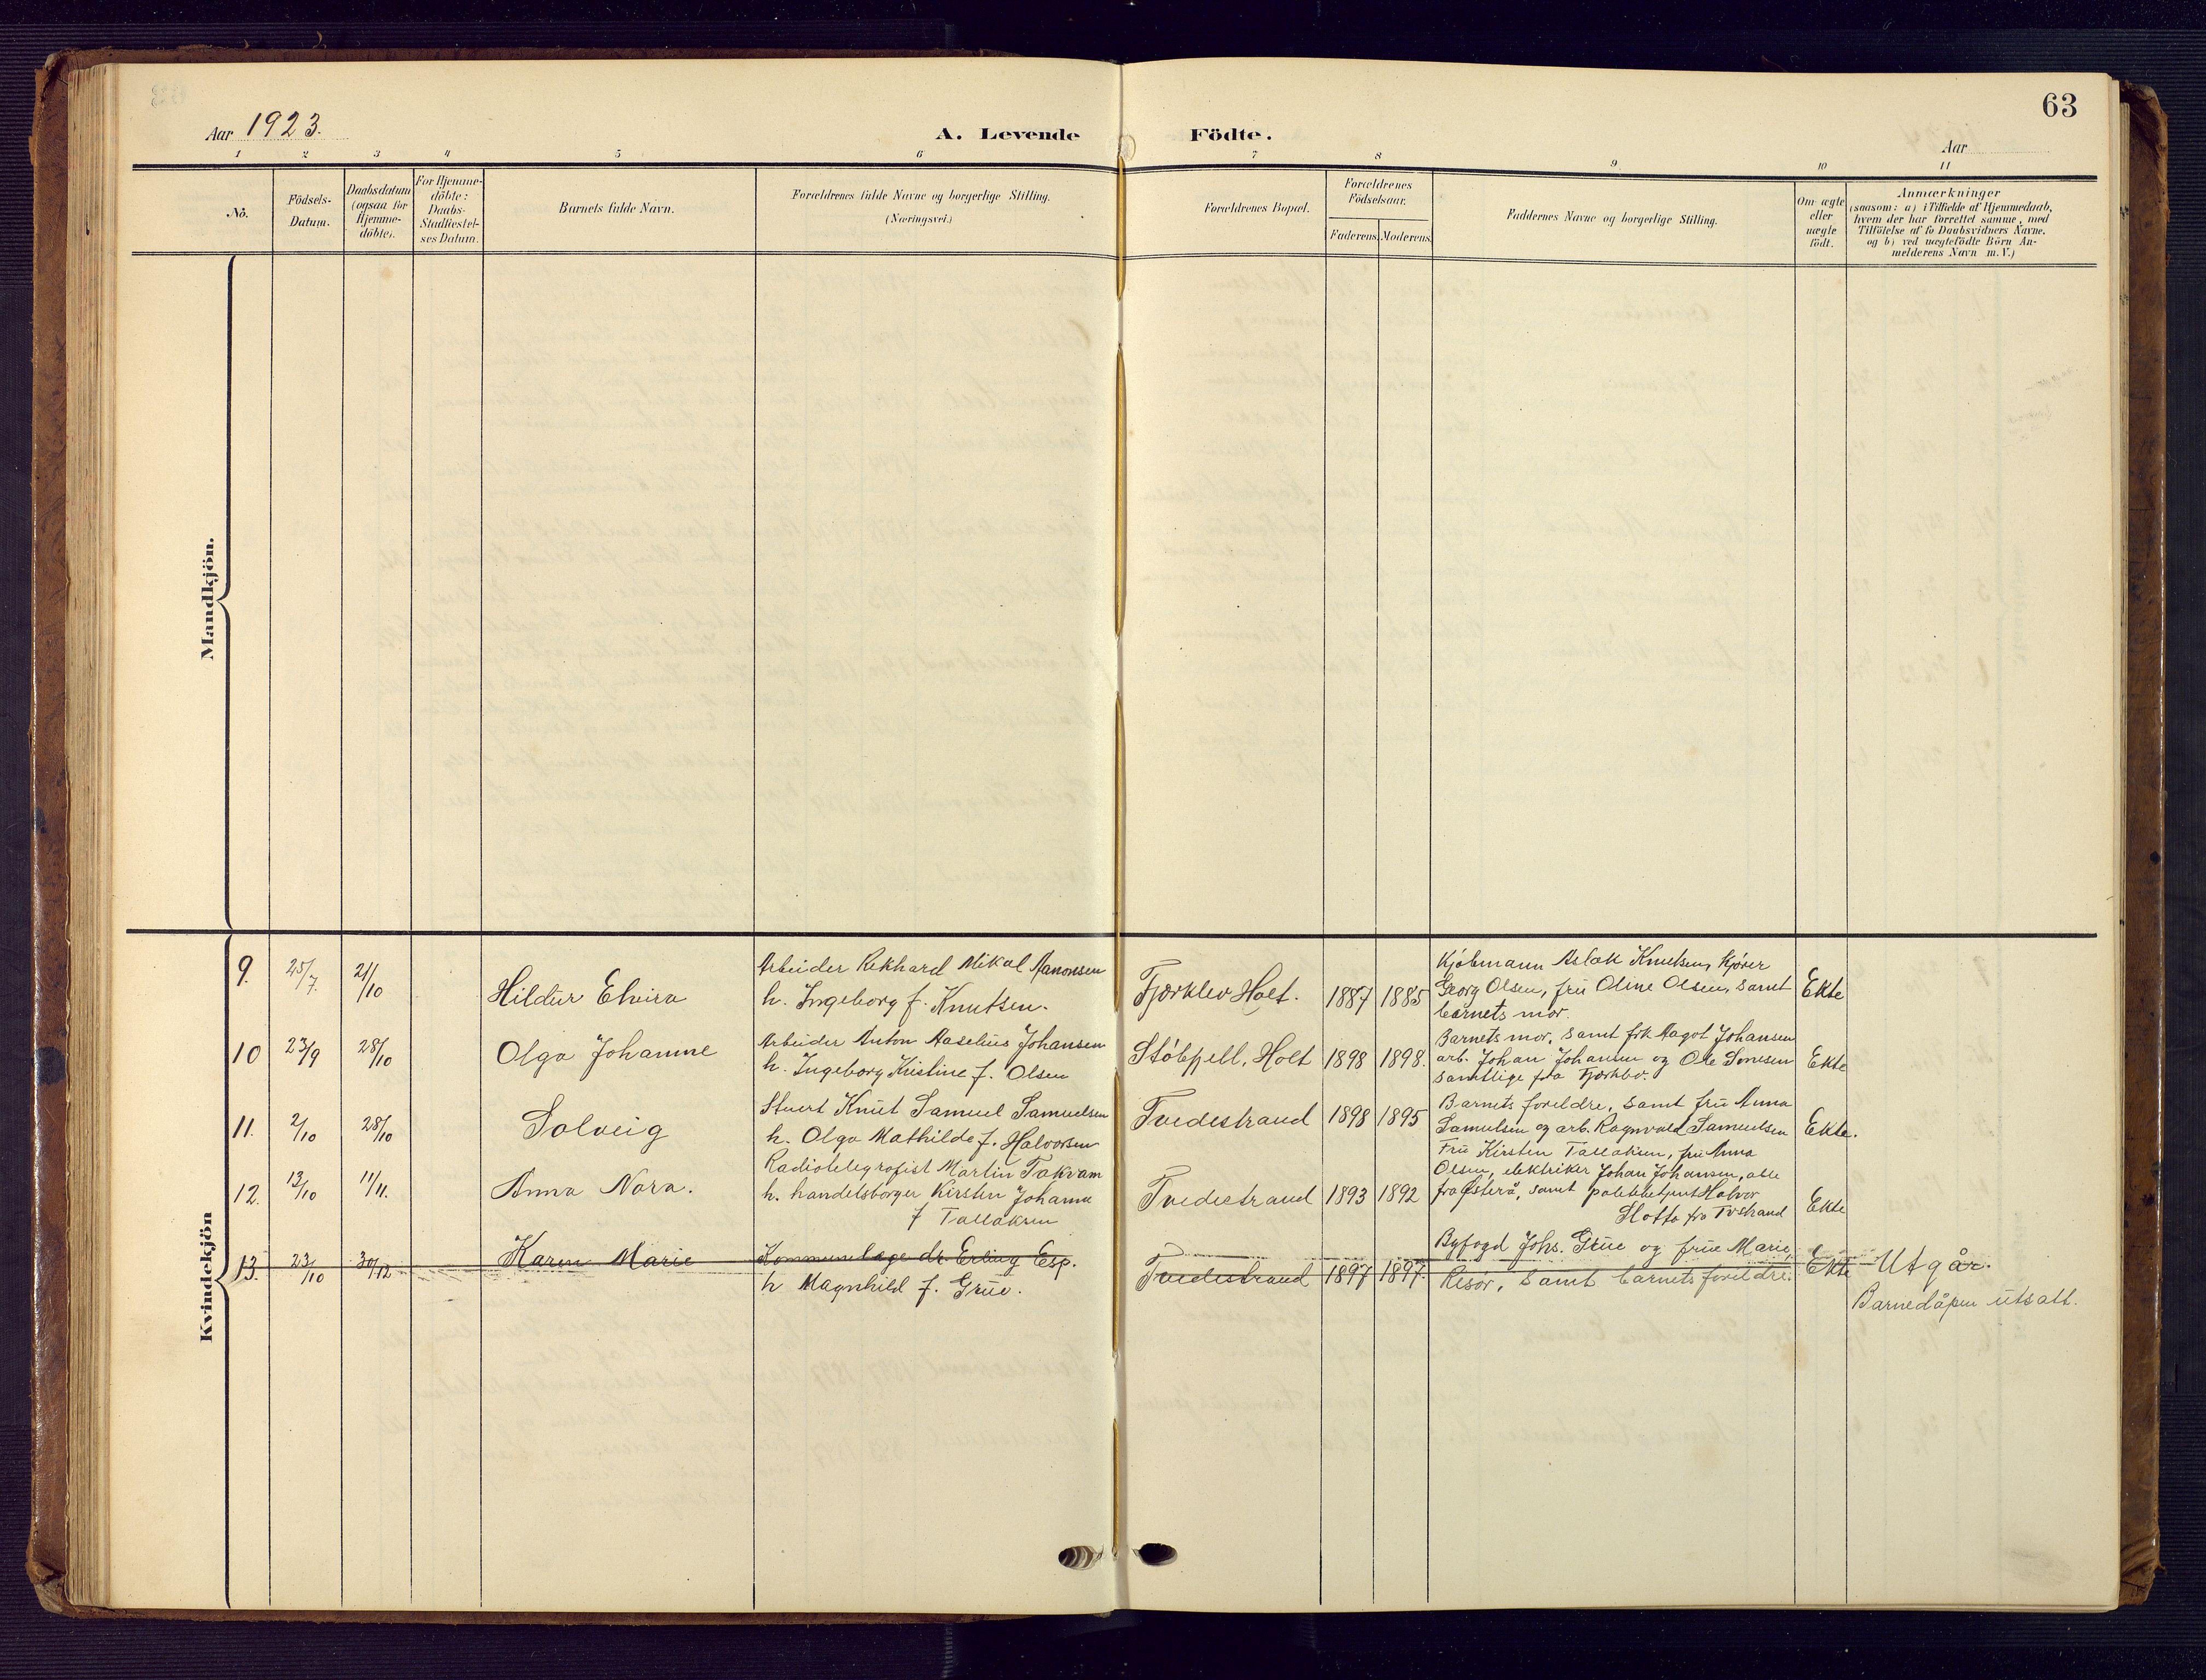 63
Aar 1923.
A. Levende Födte.
Aar
1 2 3 4 5 6 7 8 9 10 11
No.
Födsels-
Datum.
Daabsdatum
(ogsaa for
Hjemme-
döbte).
For Hjemme-
döbte:
Daabs-
Stadfæstel-
ses Datum.
Barnets fulde Navn.
Forældrenes fulde Navne og borgerlige Stilling.
(Næringsvei.)
Forældrenes Bopæl.
Forældrenes
Födselsaar.
Faderens. Moderens.
Faddernes Navne og borgerlige Stilling.
Om ægte
eller
uægte
födt.
Anmærkninger
(saasom: a) i Tilfælde af Hjemmedaab,
hvem der har forrettet samme, med
Tilföielse af to Daabsvidners Navne.
og b) ved uægtefödte Börn An-
melderens Navn m. V.)
Mandkjön.
Kvindekjön
9. 25/7. 21/10
Hildur Elvira
Arbeider Rikhard Mikal Aanonsen
h. Ingeborg f. Knutsen.
Fjærklev Holt.
1887 1885
Kjøbmann Aslak Knutsen, kjører
Georg Olsen, fru Oline Olsen, samt
barnets mor.
Ekte
10 23/9 28/10
Olga Johanne
Arbeider Anton Aaselius Johansen
h. Ingeborg Kristine f. Olsen
Støbfjell, Holt
1898 1898.
Barnets mor, samt frk Aagot Johansen
arb. Johan Johansen og Ole
samtlige fra Fjærklev.
Ekte
11. 2/10 28/10
Solveig
Stuert Knut Samuel Samuelsen
h. Olga Mathilde f. Halvorsen
Tvedestrand
1898 1895
Barnets foreldre, samt fru Anna
Samuelsen og arb. Ragnvald Samuelsen
Ekte.
12. 13/10 11/11.
Anna Nora.
Radiotelegrafist Martin Takvam
h. handelsborger Kirsten Johanne
f Tallaksen
Tvedestrand
1893 1892
Fru Kirsten Tallaksen, fru Anna
Olsen, elektriker Johan Johansen, alle
fra Østerå, samt politibetjent Halvor
Slotta fra Tvstrand
Ekte
13. 23/10 30/12
Karen Marie
Kommunelæge dr. Erling Esp.
h Magnhild f. Grüe.
Tvedestrand
1897 1897.
Byfogd Johs. Grüe og frue Marie,
Risør, samt barnets foreldre.
Ekte
Utgår.
Barnedåpen utsatt.